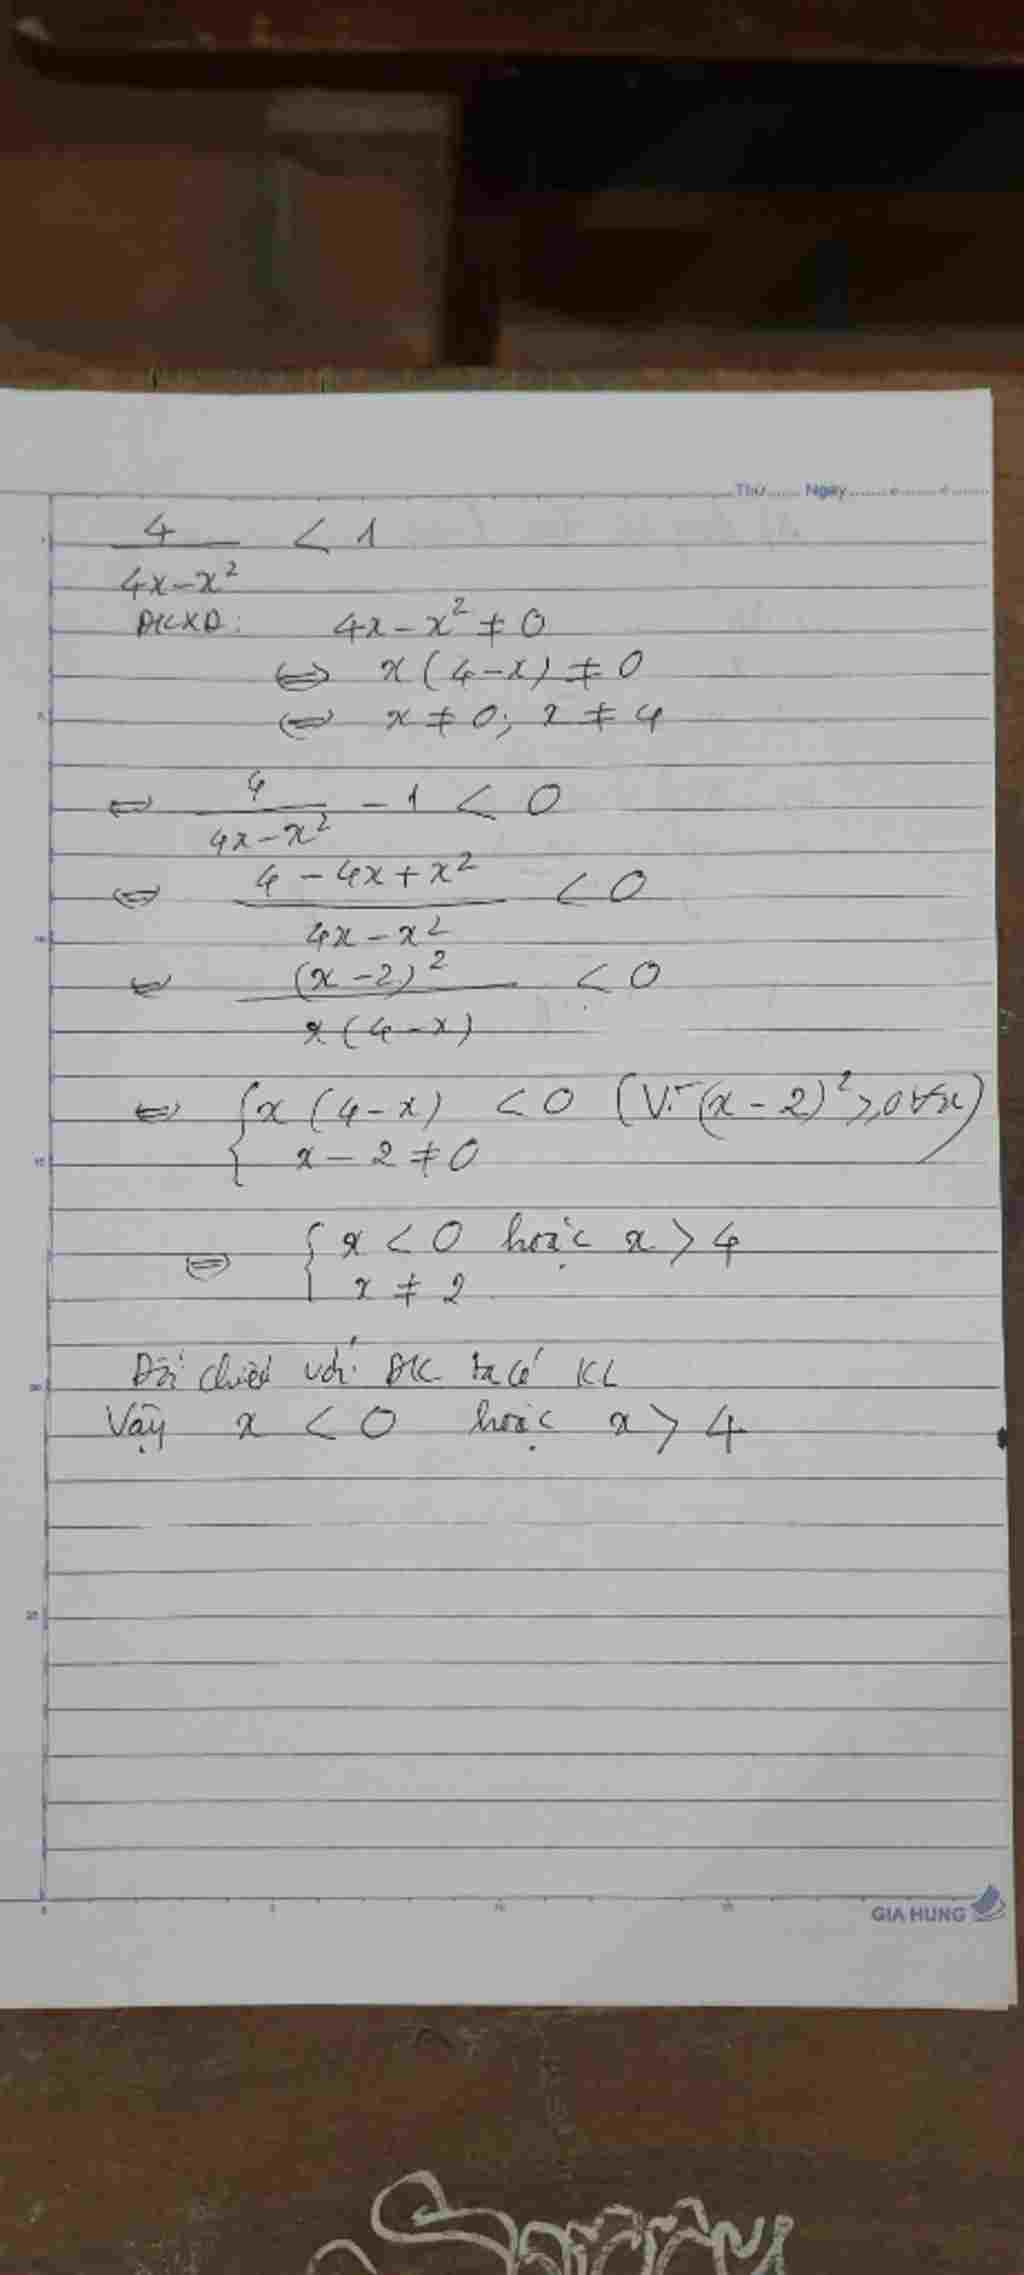 Thứ...... Ngày ........ / ....... / .......
4/(4x-x²) < 1
ĐKXĐ: 4x - x² ≠ 0
⇔ x(4-x) ≠ 0
⇔ x ≠ 0; x ≠ 4
⇔ 4/(4x-x²) - 1 < 0
⇔ (4 - 4x + x²)/(4x - x²) < 0
⇔ (x-2)²/(x(4-x)) < 0
⇔ { x(4-x) < 0 (Vì (x-2)² ≥ 0 ∀x)
x - 2 ≠ 0
⇔ { x < 0 hoặc x > 4
x ≠ 2
Đối chiếu với ĐK ta có KL
Vậy x < 0 hoặc x > 4
GIA HUNG